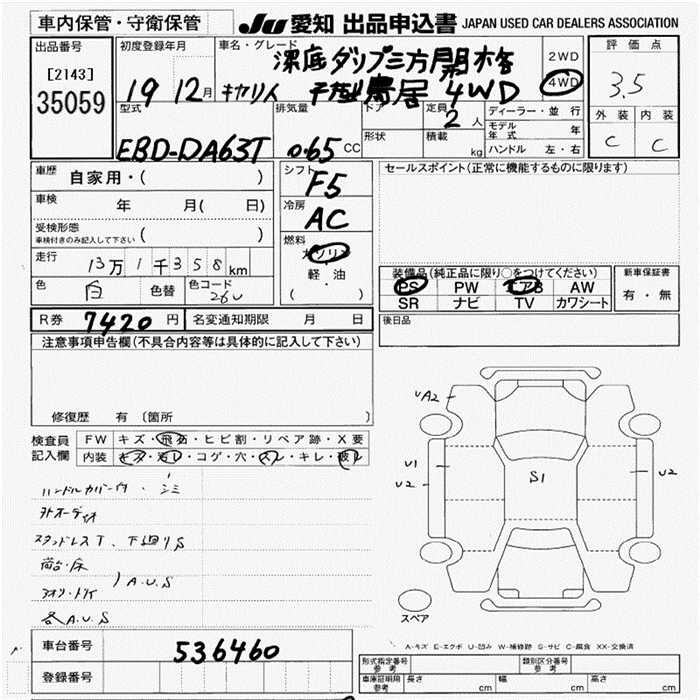 車内保管・守衛保管
JU 愛知 出品申込書 JAPAN USED CAR DEALERS ASSOCIATION
出品番号
[2143]
35059
初度登録年月
19 12月
車名・グレード
深底ダンプ三方開
キャリイ 4WD
2WD
4WD
評価点
3.5
外装 内装
C C
型式
EBD-DA63T
排気量
0.65 CC
ドア
形状
定員
2 人
積載 kg
ディーラー・並行
モデル年式 年
ハンドル 左・右
車歴
自家用・( )
車検
年 月( 日)
受検形態
車検付きのみ記入して下さい ( )
走行
13万1千358km
色 白 色替 色コード 26U
シフト
F5
冷房
AC
燃料
ガソリン
・
軽・油
( )
セールスポイント(正常に機能するものに限ります)
装備品(純正品に限り○をつけてください)
PS PW エアB AW
SR ナビ TV カワシート
新車保証書
有・無
R券 7420 円 名変通知期限 月 日
後日品
注意事項申告欄(不具合内容等は具体的に記入して下さい)
修復歴 有 〔箇所
検査員記入欄
FW キズ・飛石・ヒビ割・リペア跡・X要
内装 キズ・汚レ・コゲ・穴・スレ・キレ・破レ
ハンドルカバー付・シミ
外オーディオ
スタッドレスT、下廻りS
荷台・床
アオリ・トリイ )A.U.S
各A.U.S
UA2
U1
U2
S1
U2
スペア
A-キズ E-エクボ U-凹み W-補修跡 S-サビ C-腐食 XX-交換済
車台番号 536460
登録番号
形式指定番号 参考
類別区分番号 参考
車庫証明用 参考 長さ cm 幅 cm 高さ cm